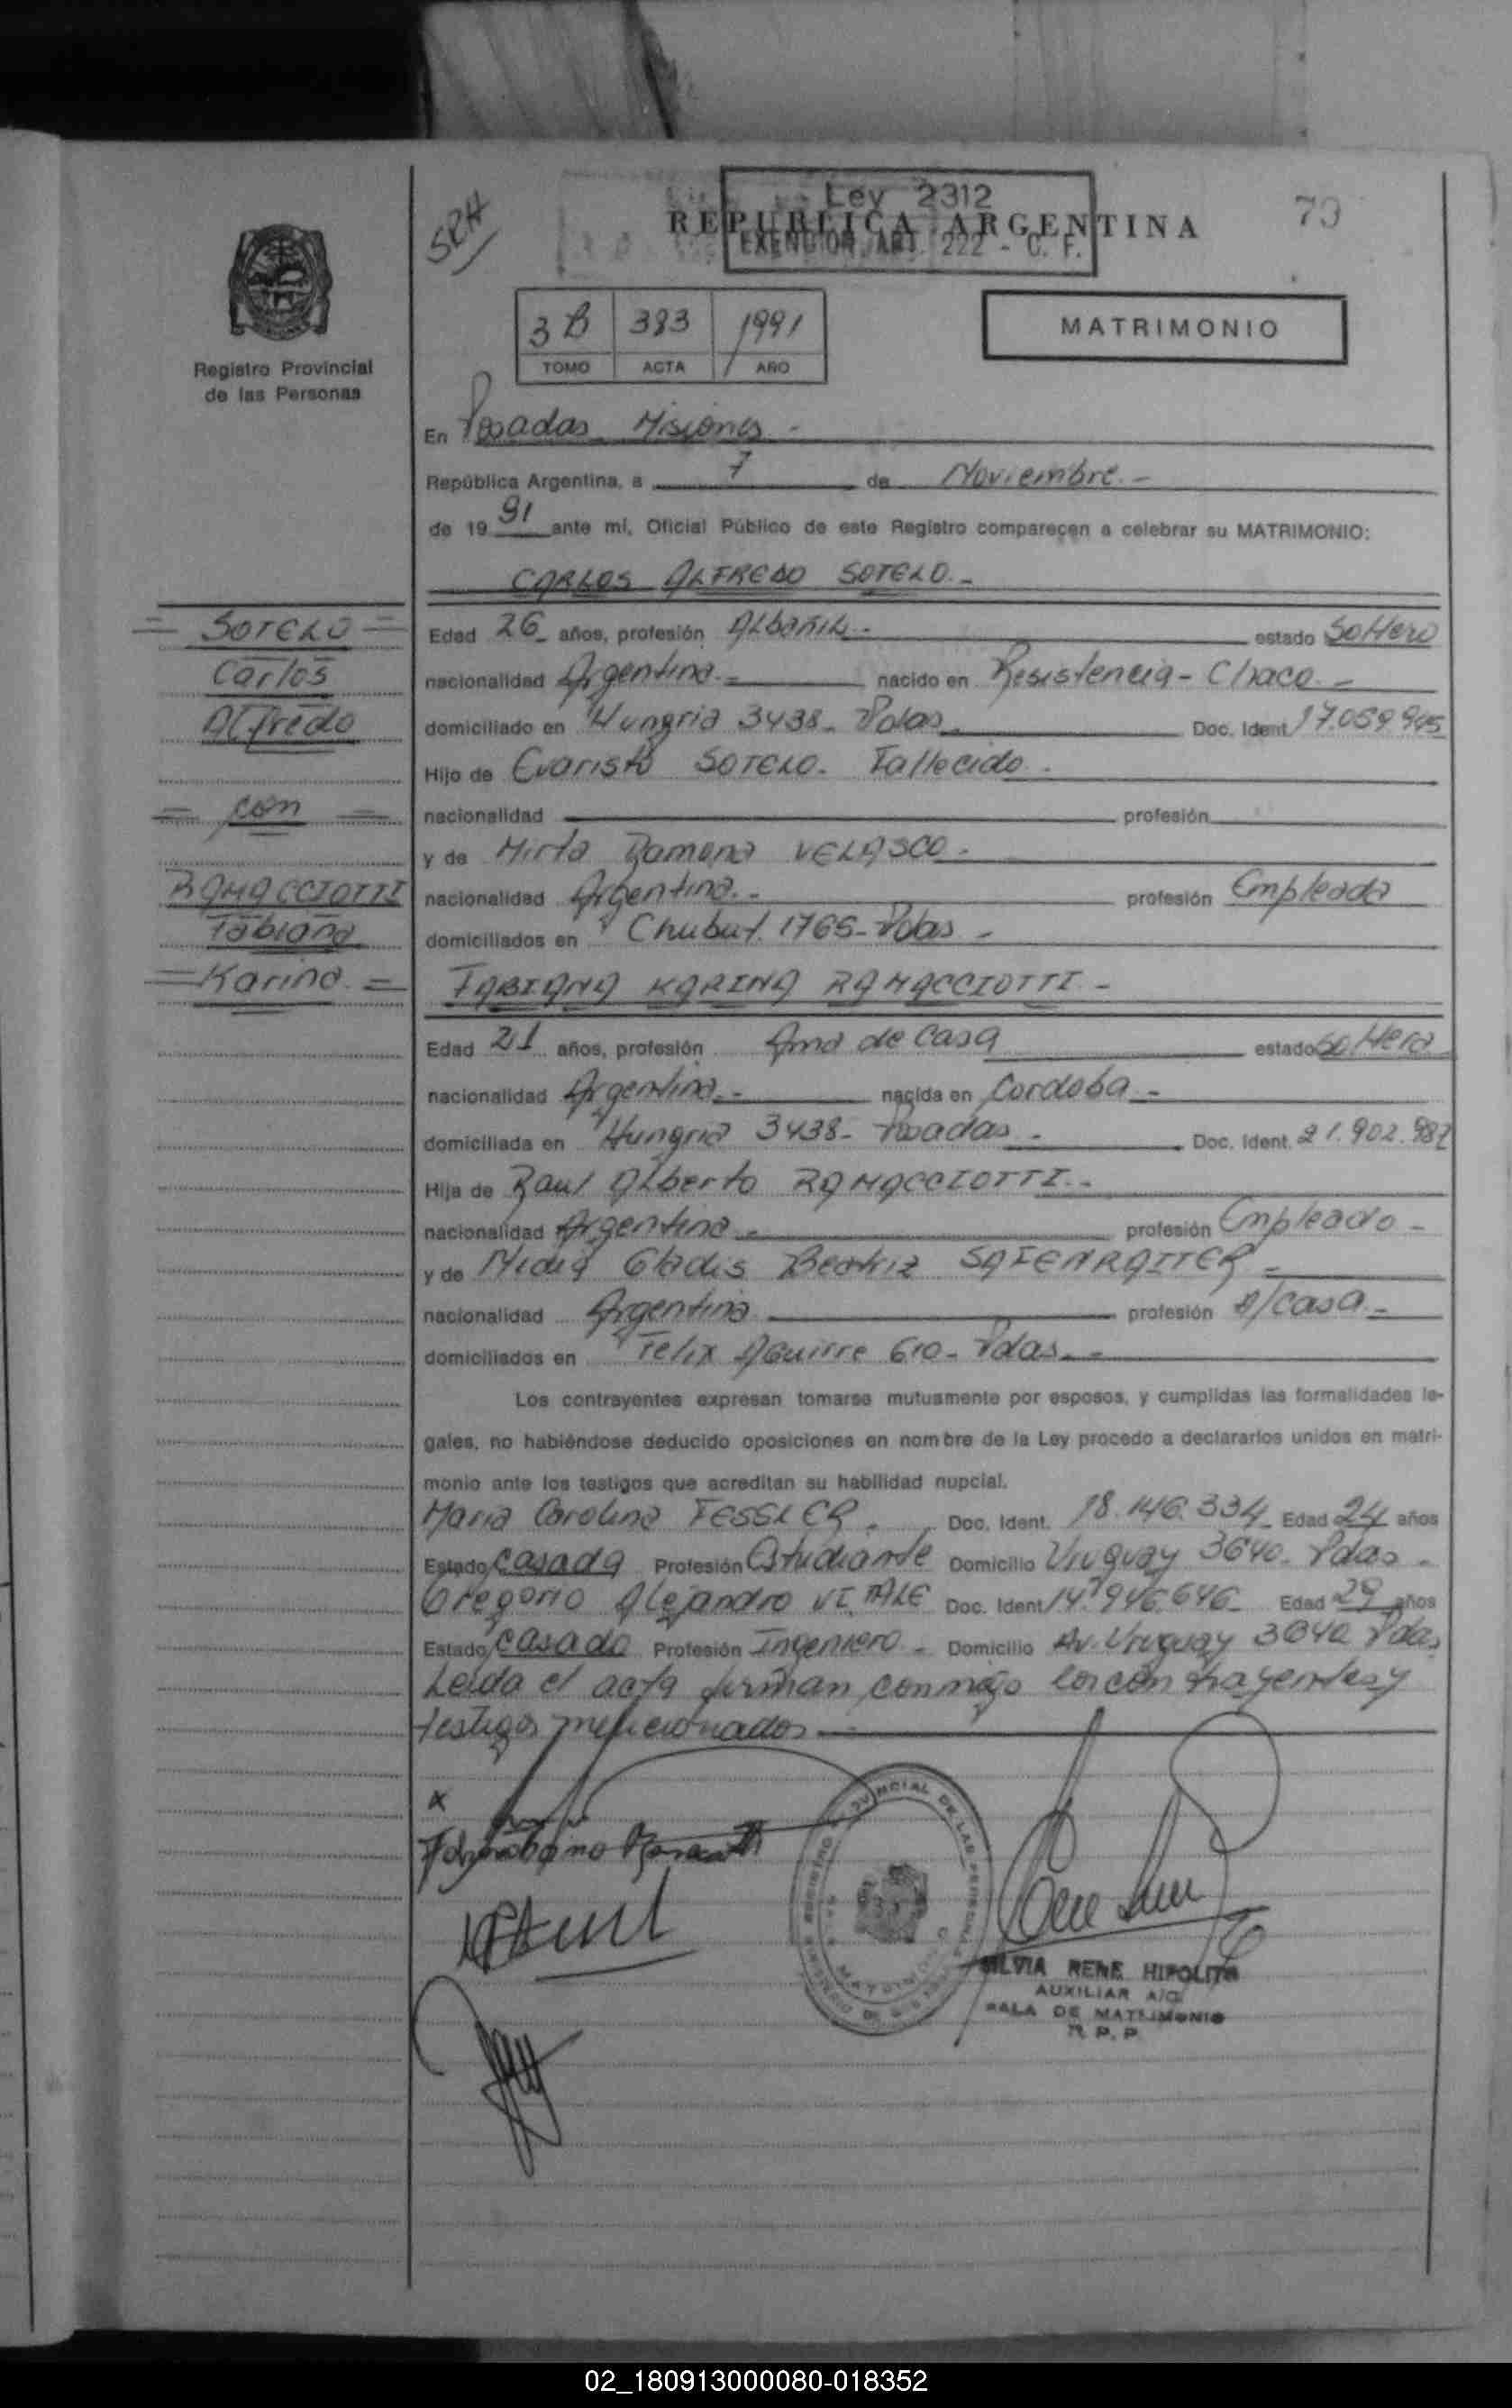 Ley 2312
REPUBLICA ARGENTINA
EXENCION ART. 222 - C. F.
79
SRH
3B 383 1991
TOMO ACTA AÑO
MATRIMONIO
Registro Provincial
de las Personas
En Posadas Misiones.-
República Argentina, a 7 de Noviembre.-
de 19 91 ante mí, Oficial Público de este Registro comparecen a celebrar su MATRIMONIO:
CARLOS ALFREDO SOTELO.-
= SOTELO =
Carlos
Alfredo
= con =
RAMACCIOTTI
Fabiana
= Karina =
Edad 26 años, profesión Albañil.- estado Soltero
nacionalidad Argentina.- nacido en Resistencia - Chaco.-
domiciliado en Hungria 3438- Pdas. Doc. Ident. 17.059.945
Hijo de Evaristo SOTELO. Fallecido.
nacionalidad profesión
y de Mirta Ramona VELASCO.
nacionalidad Argentina.- profesión Empleada
domiciliados en Chubut. 1765- Pdas -
FABIANA KARINA RAMACCIOTTI.-
Edad 21 años, profesión Ama de Casa estado Soltera
nacionalidad Argentina.- nacida en Cordoba.-
domiciliada en Hungria 3438- Posadas.- Doc. Ident. 21.902.987
Hija de Raul Alberto RAMACCIOTTI.-
nacionalidad Argentina.- profesión Empleado-
y de Gladis Beatriz
nacionalidad Argentina profesión A/casa.-
domiciliados en Felix Aguirre 610- Pdas.-
Los contrayentes expresan tomarse mutuamente por esposos, y cumplidas las formalidades le-
gales, no habiéndose deducido oposiciones en nombre de la Ley procedo a declararlos unidos en matri-
monio ante los testigos que acreditan su habilidad nupcial.
Maria Carolina FESSLER. Doc. Ident. 18.146.334 Edad 24 años
Estado casada Profesión Estudiante Domicilio Uruguay 3640- Pdas.
Gregorio Alejandro VITALE Doc. Ident. 14.946.646 Edad 29 años
Estado casado Profesión Ingeniero- Domicilio Av. Uruguay 3640 Pdas
Leida el acta firman conmigo los contrayentes y
testigos mencionados.-
SILVIA RENE HIPOLITO
AUXILIAR A/C
SALA DE MATRIMONIO
R. P. P.
02_180913000080-018352